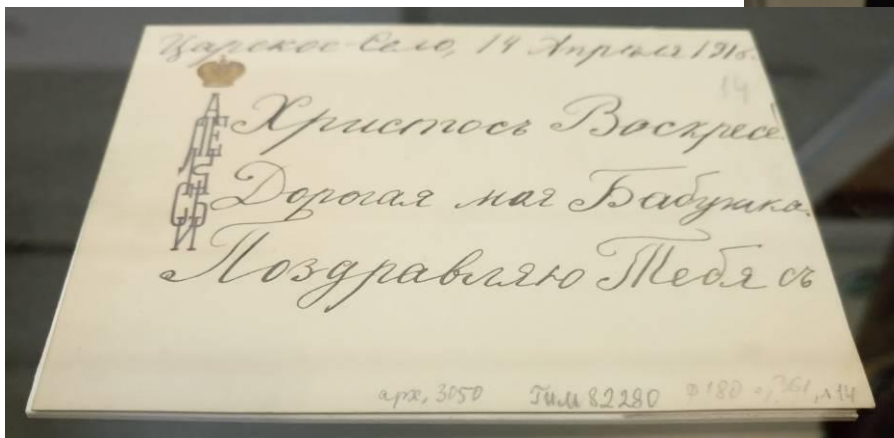 Царское-Село, 14 Апрѣля
14
АЛЕКСѢЙ
Христосъ Воскресе!
Дорогая моя Бабушка.
Поздравляю Тебя съ
арх, 3050 Гим 82280 ф180 л14